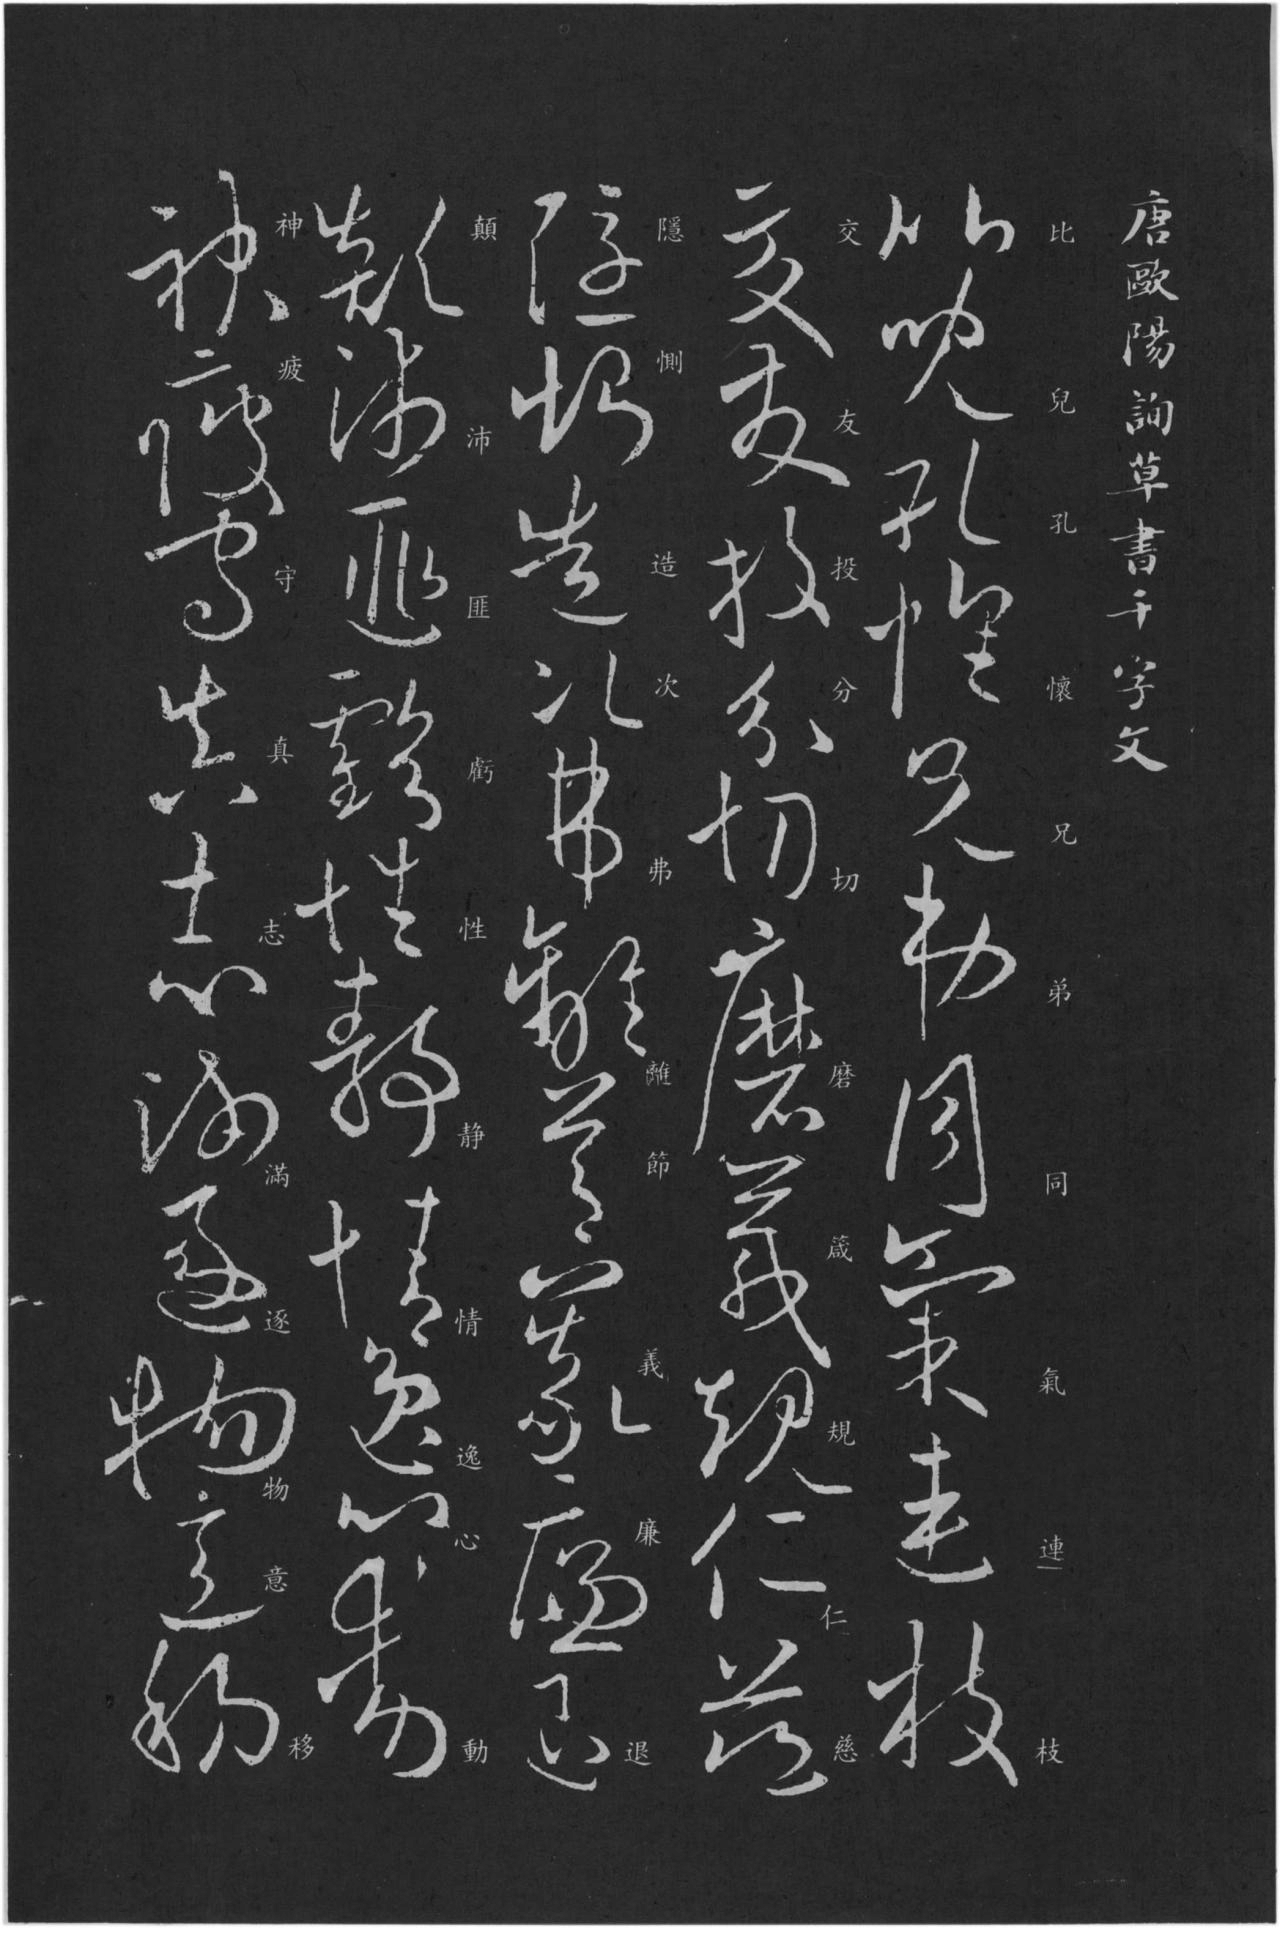 唐歐陽詢草書千字文
比兒孔懷兄弟同氣連枝
比兒孔懷兄弟同氣連枝
交友投分切磨箴規仁慈
交友投分切磨箴規仁慈
隱惻造次弗離節義廉退
隱惻造次弗離節義廉退
顛沛匪虧性静情逸心動
顛沛匪虧性靜情逸心動
神疲守真志滿逐物意移
神疲守真志滿逐物意移